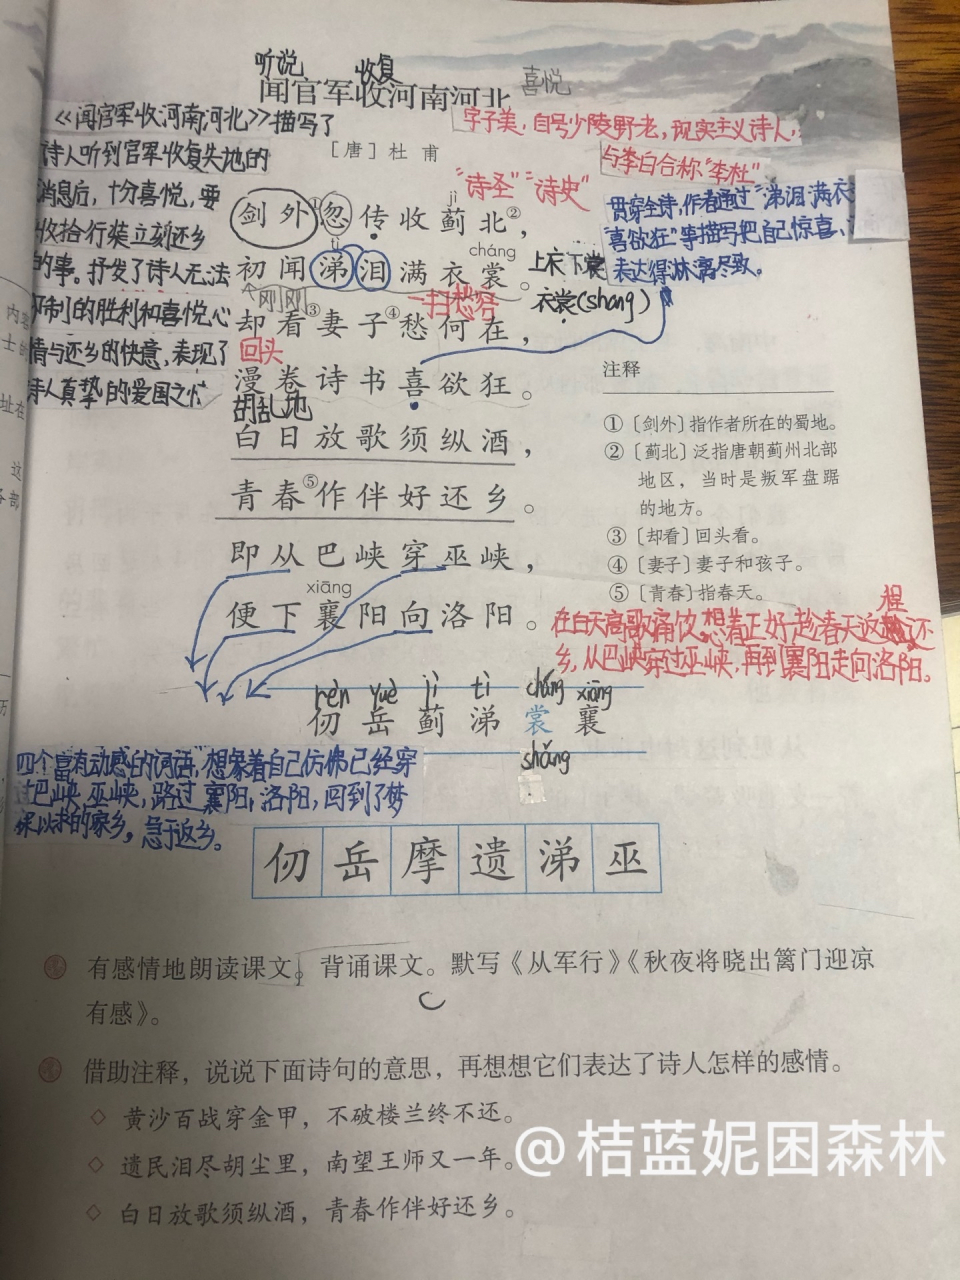 听说 收复 喜悦
闻官军收河南河北
[唐] 杜甫
《闻官军收河南河北》描写了
诗人听到官军收复失地的
消息后，十分喜悦，要
收拾行装立刻还乡
的事。抒发了诗人无法
制的胜利和喜悦心
情与还乡的快意，表现了
诗人真挚的爱国之
字子美，自号少陵野老，现实主义诗人，
与李白合称“李杜”
“诗圣”“诗史”
贯穿全诗，作者通过“涕泪满衣
喜欲狂”等描写把自己惊喜、
表达得淋漓尽致。
jì
剑外①忽传收蓟北②，
tì cháng
初闻涕泪满衣裳。
上衣下裳
衣裳(shang)
刚刚 一扫愁容
却看③妻子④愁何在，
回头
漫卷诗书喜欲狂。
胡乱地
白日放歌须纵酒，
青春⑤作伴好还乡。
即从巴峡穿巫峡，
xiāng
便下襄阳向洛阳。
注释
①〔剑外〕指作者所在的蜀地。
②〔蓟北〕泛指唐朝蓟州北部
地区，当时是叛军盘踞
的地方。
③〔却看〕回头看。
④〔妻子〕妻子和孩子。
⑤〔青春〕指春天。
在白天高歌痛饮，想着正好趁春天返还
乡，从巴峡穿过巫峡，再到襄阳走向洛阳。
rèn yuè jì tì cháng xiāng
仞岳蓟涕裳襄
shang
四个富有动感的词语，想象着自己仿佛已经穿
过巴峡、巫峡，路过襄阳，洛阳，回到了梦
寐以求的家乡，急于返乡。
仞岳摩遗涕巫
有感情地朗读课文。背诵课文。默写《从军行》《秋夜将晓出篱门迎凉
有感》。
借助注释，说说下面诗句的意思，再想想它们表达了诗人怎样的感情。
◇ 黄沙百战穿金甲，不破楼兰终不还。
◇ 遗民泪尽胡尘里，南望王师又一年。
◇ 白日放歌须纵酒，青春作伴好还乡。
@桔蓝妮困森林
内容
士的
址在
这
各部